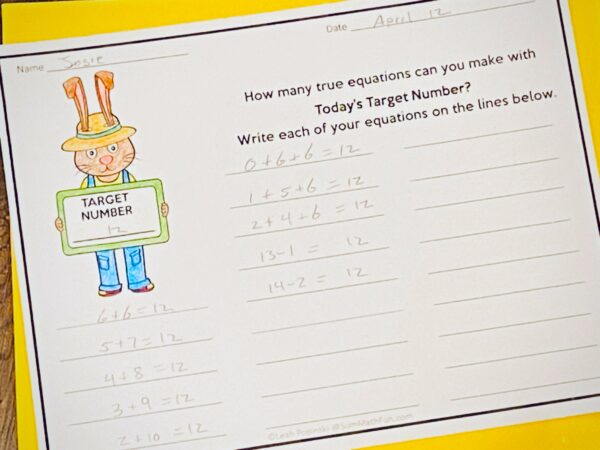 Name Josie
Date April 12
How many true equations can you make with
Today's Target Number?
Write each of your equations on the lines below.
TARGET
NUMBER
12
6+6=12
5+7=12
4+8=12
3+9=12
2+10=12
0+6+6=12
1+5+6=12
2+4+6=12
13-1=12
14-2=12
©Leah Popinski @SumMathFun.com